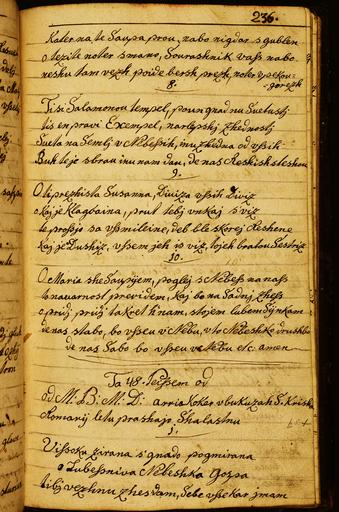 236.
Kater na te Saupa prou, nabo nigdar s'gublen
o tezite noter smano, Sourashnik vass nabo
neshu tam vezh poide bersh prezh, noter v pekou-
goreozh
8.
Ti si Salamonou tempel, poun gnad nu Suetusty
tis en pravi Exempel, narlipshj zhednosty
Sueta na Semlj v Nebessih, inu zhedna od vssih
Buh tejo sbrau inu nam dau, de nas Reshish stesham
9.
O te prezhista Susanna, Diviza vssih Diviz
o koj je klagbaina, prut tebj vnkaj s'viz
te prossjo sa vssmileine, deb ble skorej Reshene
kaj je Dushiz, vssem jeh is viz, tojeh bratou Sestriz
10.
O Maria she Saupijem, poglej s'Nebess na nass
s'navarnost previdem, kaj bo na Sadnj zhess
o prid prid takrat k'nam, stojem lubem Synkam
de nas s'tabo, bo vsseu v Nebu, v to Nebeshke drushbo
de nas Sabo bo vsseu v Nebu etc. amen
Ta 48. Peissem od
od M: B: M: D: arria koker v bukuzah S: Krisha
Romarij letu prashajo Shalastnu
1.
Vissoku zirana s'gnado pogmirana
o Lubesniva Nebeshka Gospa
tibj vezhnu zhes dam, Sebe vsse kar jmam